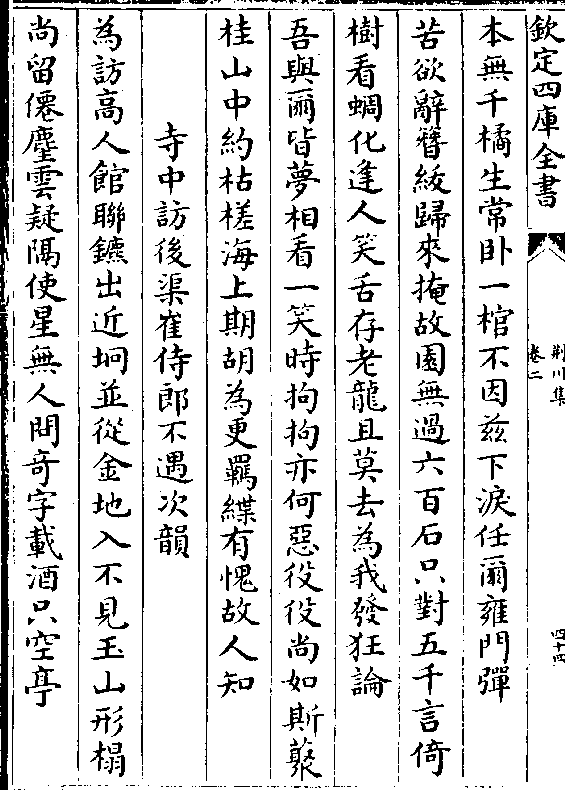 欽定四庫全書
荆川集
卷二
四十四
本無千橘生常卧一棺不因兹下淚任爾雍門彈
苦欲辭簪紱歸來掩故園無過六百石只對五千言倚
樹看蜩化逢人笑舌存老龍且莫去為我發狂論
吾與爾皆夢相看一笑時拘拘亦何惡役役尚如斯藂
桂山中約枯槎海上期胡為更羈緤有愧故人知
寺中訪後渠崔侍郎不遇次韻
為訪高人館聯鑣出近坰並從金地入不見玉山形榻
尚留僊麈雲疑隔使星無人問奇字載酒只空亭